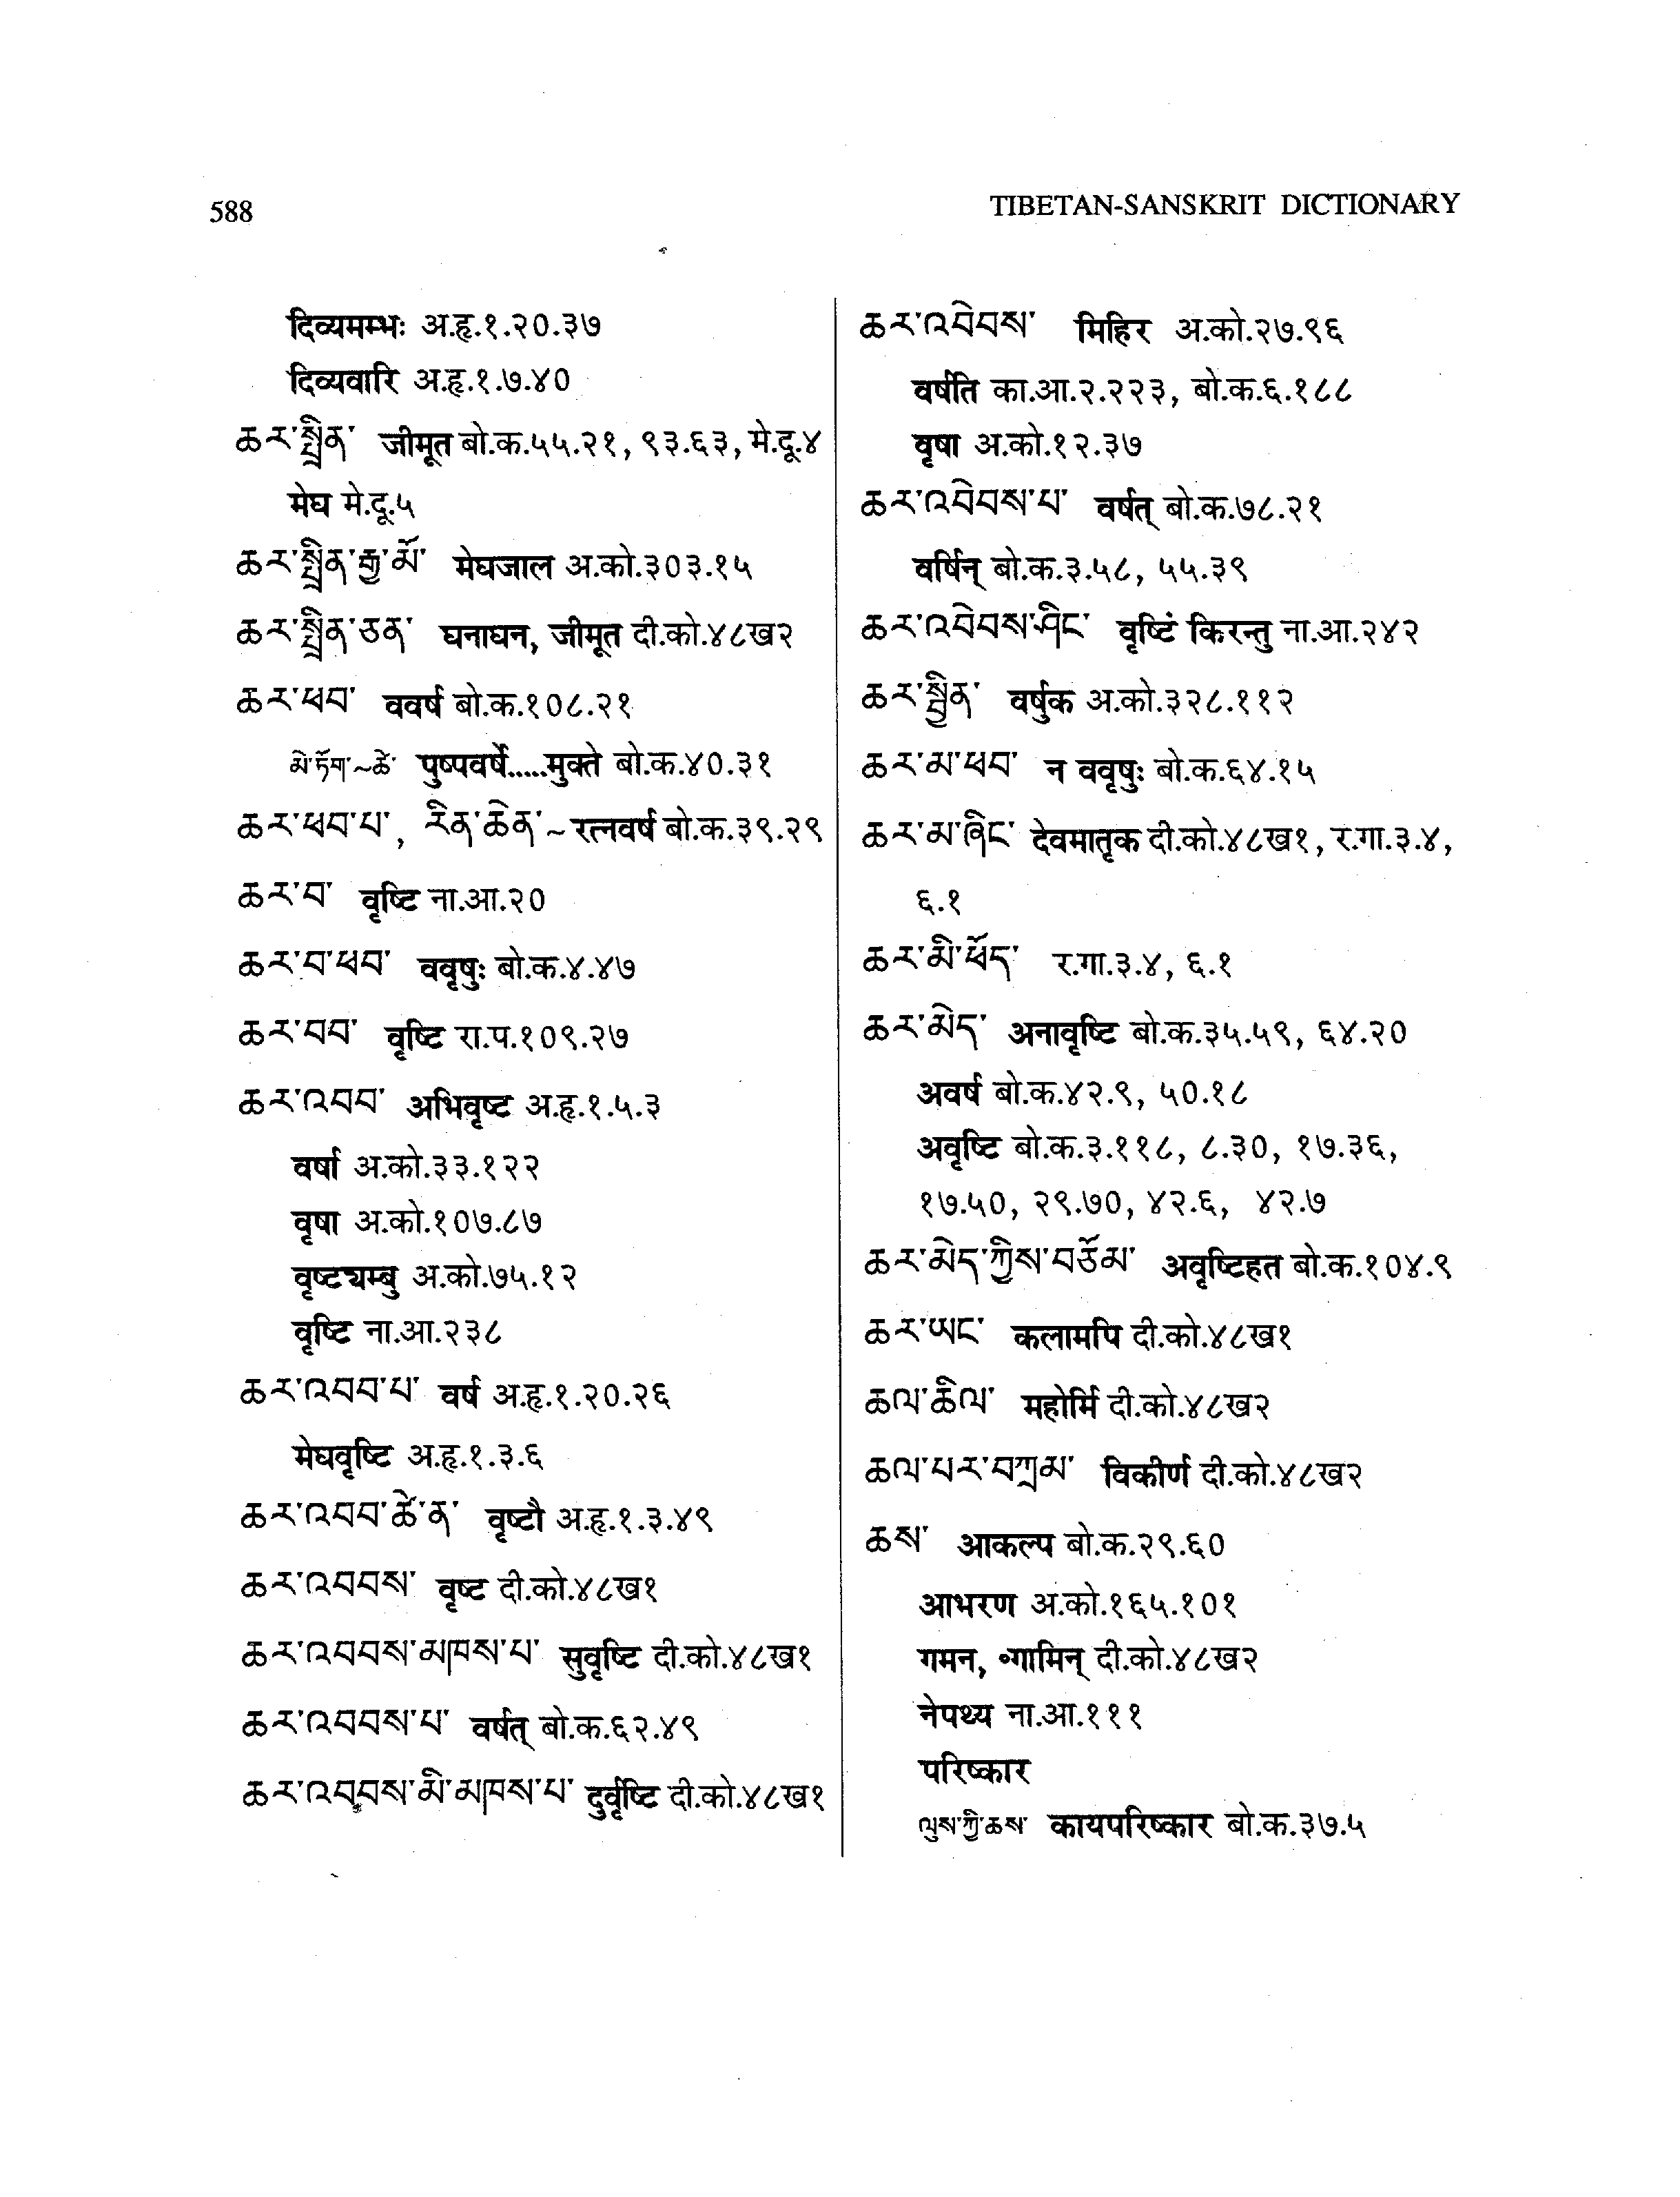 588
TIBETAN-SANSKRIT DICTIONARY
दिव्यमम्भः अ.हृ.१.२०.३७
दिव्यवारि अ.हृ.१.७.४०
ཆར་སྤྲིན་ जीमूत बो.क.५५.२१, ९३.६३, मे.दू.४
मेघ मे.दू.५
ཆར་སྤྲིན་རྒྱ་མོ་ मेघजाल अ.को.३०३.१५
ཆར་སྤྲིན་ཅན་ घनाघन, जीमूत दी.को.४८ख२
ཆར་ཕབ་ ववर्ष बो.क.१०८.२१
མེ་ཏོག་~ཚེ་ पुष्पवर्षे.....मुक्ते बो.क.४०.३१
ཆར་ཕབ་པ་, རིན་ཆེན་~ रत्नवर्ष बो.क.३९.२९
ཆར་བ་ वृष्टि ना.आ.२०
ཆར་བ་ཕབ་ ववृषुः बो.क.४.४७
ཆར་བབ་ वृष्टि रा.प.१०९.२७
ཆར་འབབ་ अभिवृष्ट अ.हृ.१.५.३
वर्षा अ.को.३३.१२२
वृषा अ.को.१०७.८७
वृष्ट्यम्बु अ.को.७५.१२
वृष्टि ना.आ.२३८
ཆར་འབབ་པ་ वर्ष अ.हृ.१.२०.२६
मेघवृष्टि अ.हृ.१.३.६
ཆར་འབབ་ཚེ་ན་ वृष्टौ अ.हृ.१.३.४९
ཆར་འབབས་ वृष्ट दी.को.४८ख१
ཆར་འབབས་མཁས་པ་ सुवृष्टि दी.को.४८ख१
ཆར་འབབས་པ་ वर्षत् बो.क.६२.४९
ཆར་འབབས་མི་མཁས་པ་ दुर्वृष्टि दी.को.४८ख१
ཆར་འབེབས་ मिहिर अ.को.२७.९६
वर्षति का.आ.२.२२३, बो.क.६.१८८
वृषा अ.को.१२.३७
ཆར་འབེབས་པ་ वर्षत् बो.क.७८.२१
वर्षिन् बो.क.३.५८, ५५.३९
ཆར་འབེབས་ཤིང་ वृष्टिं किरन्तु ना.आ.२४२
ཆར་སྦྱིན་ वर्षुक अ.को.३२८.११२
ཆར་མ་ཕབ་ न ववृषुः बो.क.६४.१५
ཆར་མ་ཞིང་ देवमातृक दी.को.४८ख१, र.गा.३.४,
६.१
ཆར་མི་ཕོད་ र.गा.३.४, ६.१
ཆར་མེད་ अनावृष्टि बो.क.३५.५९, ६४.२०
अवर्ष बो.क.४२.९, ५०.१८
अवृष्टि बो.क.३.११८, ८.३०, १७.३६,
१७.५०, २९.७०, ४२.६, ४२.७
ཆར་མེད་ཀྱིས་བཅོམ་ अवृष्टिहत बो.क.१०४.९
ཆར་ཡང་ कलामपि दी.को.४८ख१
ཆལ་ཆིལ་ महोर्मि दी.को.४८ख२
ཆལ་པར་བཀྲམ་ विकीर्ण दी.को.४८ख२
ཆས་ आकल्प बो.क.२९.६०
आभरण अ.को.१६५.१०१
गमन, ॰गामिन् दी.को.४८ख२
नेपथ्य ना.आ.१११
परिष्कार
ལུས་ཀྱི་ཆས་ कायपरिष्कार बो.क.३७.५